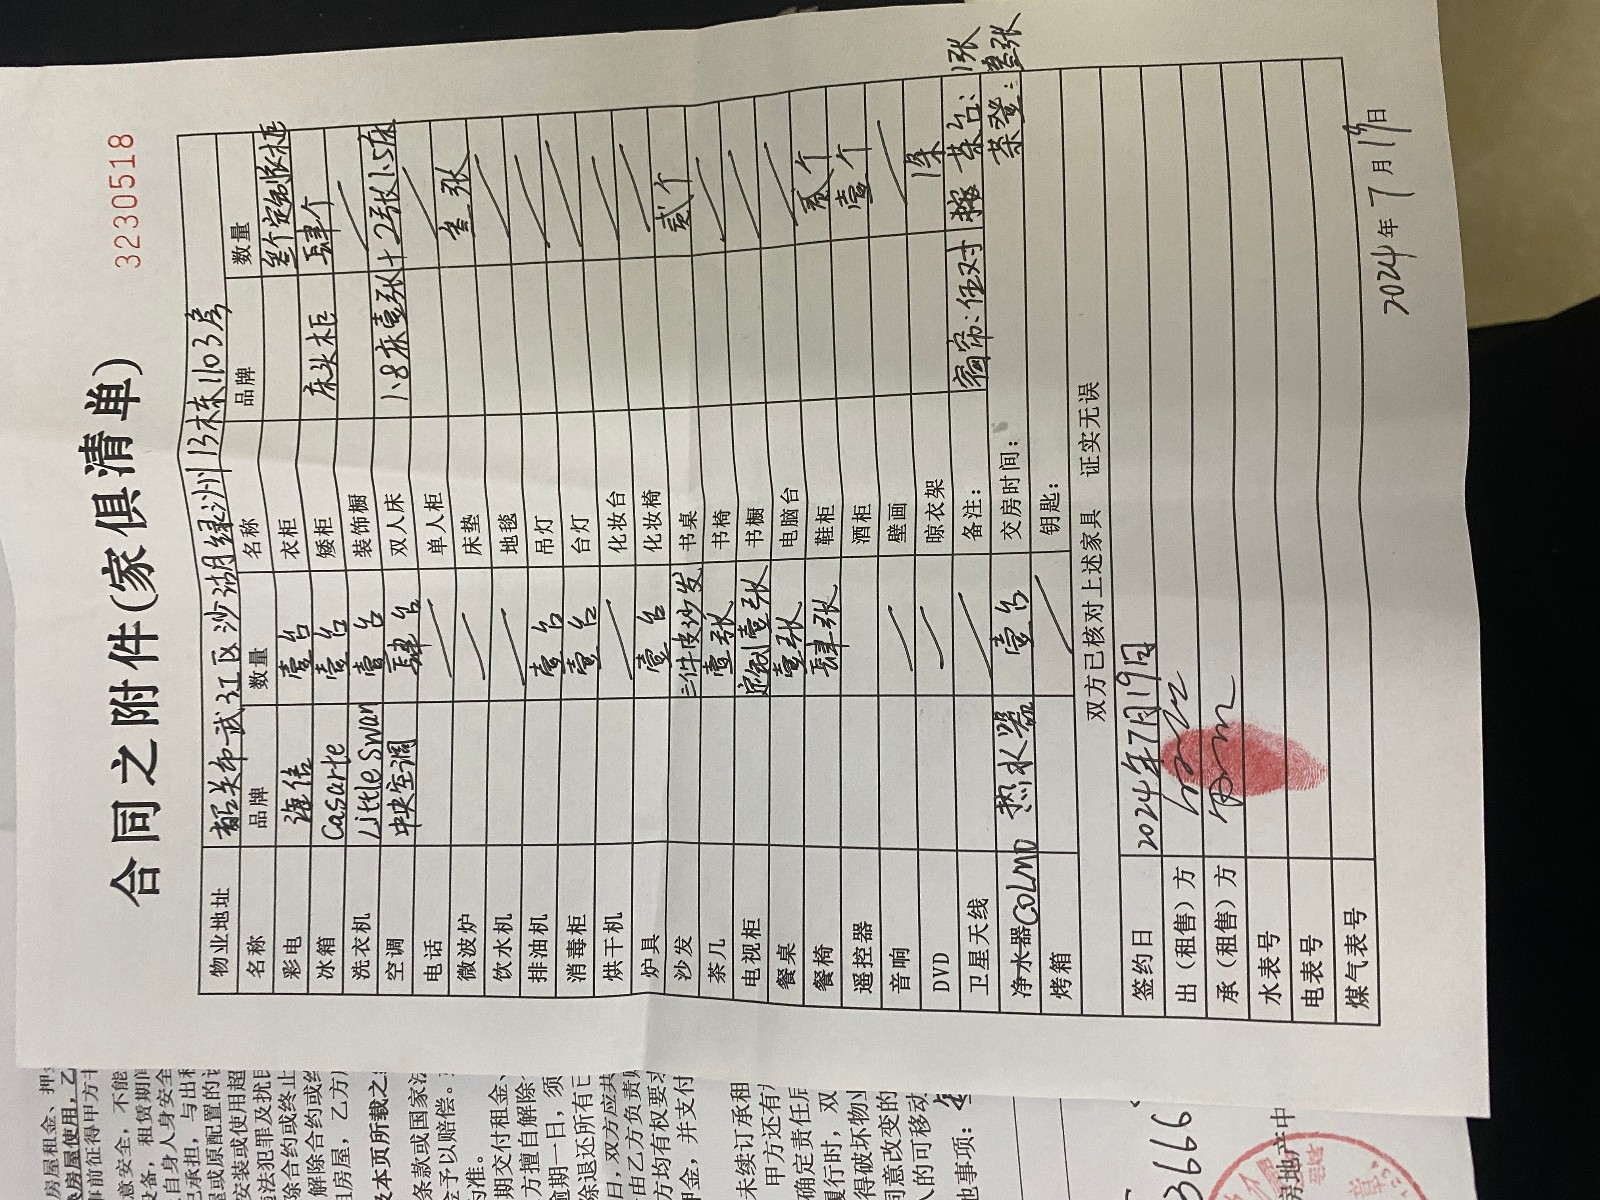 合同之附件(家俱清单)
3230518
物业地址 韶关市武江区沙湖绿洲13栋1103房
名称 品牌 数量 名称 品牌 数量
彩电 海信 壹台 衣柜 叁个定制衣柜
冰箱 Casarte 壹台 矮柜 床头柜 肆个
洗衣机 Little Swan 壹台 装饰橱
空调 中央空调 肆台 双人床 1.8床壹张+2张1.5床
电话 单人柜
微波炉 床垫 叁张
饮水机 地毯
排油机 壹台 吊灯
消毒柜 壹台 台灯
烘干机 化妆台
炉具 壹台 化妆椅
沙发 三件皮沙发 书桌 贰个
茶几 壹张 书椅
电视柜 定制壹张 书橱
餐桌 壹张 电脑台
餐椅 肆张 鞋柜 叁个
遥控器 酒柜 壹个
音响 壁画
DVD 晾衣架 1条
卫星天线 备注: 窗帘:伍对 梳妆台:1张
净水器 COLMO 热水器 壹台 交房时间: 茶凳:壹张
烤箱 钥匙:
双方已核对上述家具 证实无误
签约日 2024年7月19日
出(租售)方
承(租售)方
水表号
电表号
煤气表号
2024年7月19日
房屋租金、押
房屋使用,乙
事前征得甲方书
意安全,不能
设备,租赁期间
自身人身安全
已承担,与出租
或原配置的
安装或使用超
违法犯罪及扰民
除合约或终止
解除合约或终
租房屋,乙方
及本页所载之
条款或国家法
予以赔偿。
为准。
期交付租金、
方擅自解除
逾期一日,须
除退还所有已
日,双方应共
由乙方负责
方均有权要求
押金,并支付
未续订承租
甲方还有
确定责任后
履行时,双
得破坏物业
同意改变的
人的可移动
他事项:
3666
房地产中